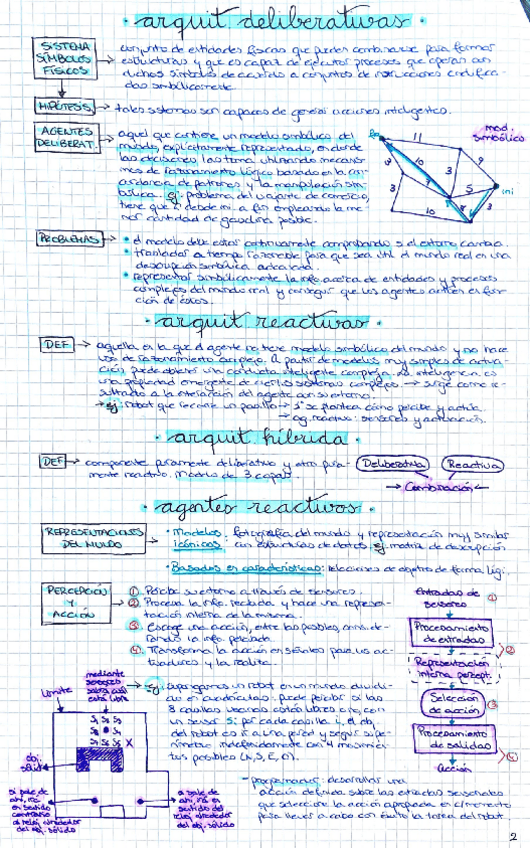 · arquit. deliberativas ·
SISTEMA
SÍMBOLOS
FÍSICOS
conjunto de entidades físicas que pueden combinarse para formar
estructuras y que es capaz de ejecutar procesos que operan con
dichos símbolos de acuerdo a conjuntos de instrucciones codifica-
das simbólicamente.
HIPÓTESIS
tales sistemas son capaces de generar acciones inteligentes.
AGENTES
DELIBERAT.
aquel que contiene un modelo simbólico del
mundo, explícitamente representado, en donde
las decisiones las toma utilizando mecanis-
mos de razonamiento lógico basado en la con-
cordancia de patrones y la manipulación sim-
bólica. ej: problema del viajante de comercio,
tiene que ir de ini a fin empleando la me-
nor cantidad de gasolina posible.
mod.
simbólico
11
9
3
10
3
5
3
10
ini
PROBLEMAS
• el modelo debe estar continuamente comprobando si el entorno cambia.
• trasladar a tiempo razonable para que sea útil el mundo real en una
descripción simbólica adecuada.
• representar simbólicamente la info acerca de entidades y procesos
complejos del mundo real y conseguir que los agentes actúen en fun-
ción de éstos.
· arquit. reactivas ·
DEF
aquella en la que el agente no tiene modelo simbólico del mundo y no hace
uso de razonamiento complejo. A partir de modelos muy simples de actua-
ción puede obtener una conducta inteligente compleja. La inteligencia es
una propiedad emergente de ciertos sistemas complejos. → surge como re-
sultado a la interacción del agente con su entorno.
→ ej: robot que recorre un pasillo:
→ ag. reactivo: sensores y actuación.
· arquit. híbrida ·
DEF
componente puramente deliberativo y otro pura-
mente reactivo. Modelo de 3 capas.
Deliberativa
Reactiva
Combinación
· agentes reactivos ·
REPRESENTACIONES
DEL MUNDO
• Modelos icónicos: fotografía del mundo y representación muy similar
con estructuras de datos ej matriz de ocupación
• Basados en características: relaciones de objetos de forma lógi.
PERCEPCIÓN
Y
ACCIÓN
① Percibe su entorno a través de sensores.
② Procesa la info. recibida y hace una represen-
tación interna de la misma.
③ Escoge una acción, entre las posibles, consi-
derando la info. percibida.
④ Transforma la acción en señales para los ac-
tuadores y la realiza.
Entradas de
sensores ①
Procesamiento
de entradas
②
Representación
interna percept.
Selección
de acción ③
Procesamiento
de salidas
④
Acción
→ ej: supongamos un robot en un mundo dividi-
do en cuadrículas, puede percibir si las
8 casillas vecinas están libres o no, con
un sensor Si por cada casilla i, el obj.
del robot es ir a una pared y seguir su pe-
rímetro indefinidamente con 4 movimien-
tos posibles (N, S, E, O).
- programador: desarrollar una
acción definida sobre las entradas sensoriales
que seleccione la acción apropiada en c/momento
para llevar a cabo con éxito la tarea del robot.
mediante
sensores
sabrá cuál
está libre
Límite
S₁ S₂ S₃
X
obj.
sólido
si sale de
ahí, irá en
sentido
contrario
al reloj alrededor
del obj. sólido
si sale de
ahí, irá en
sentido del
reloj alrededor
del obj. sólido
2